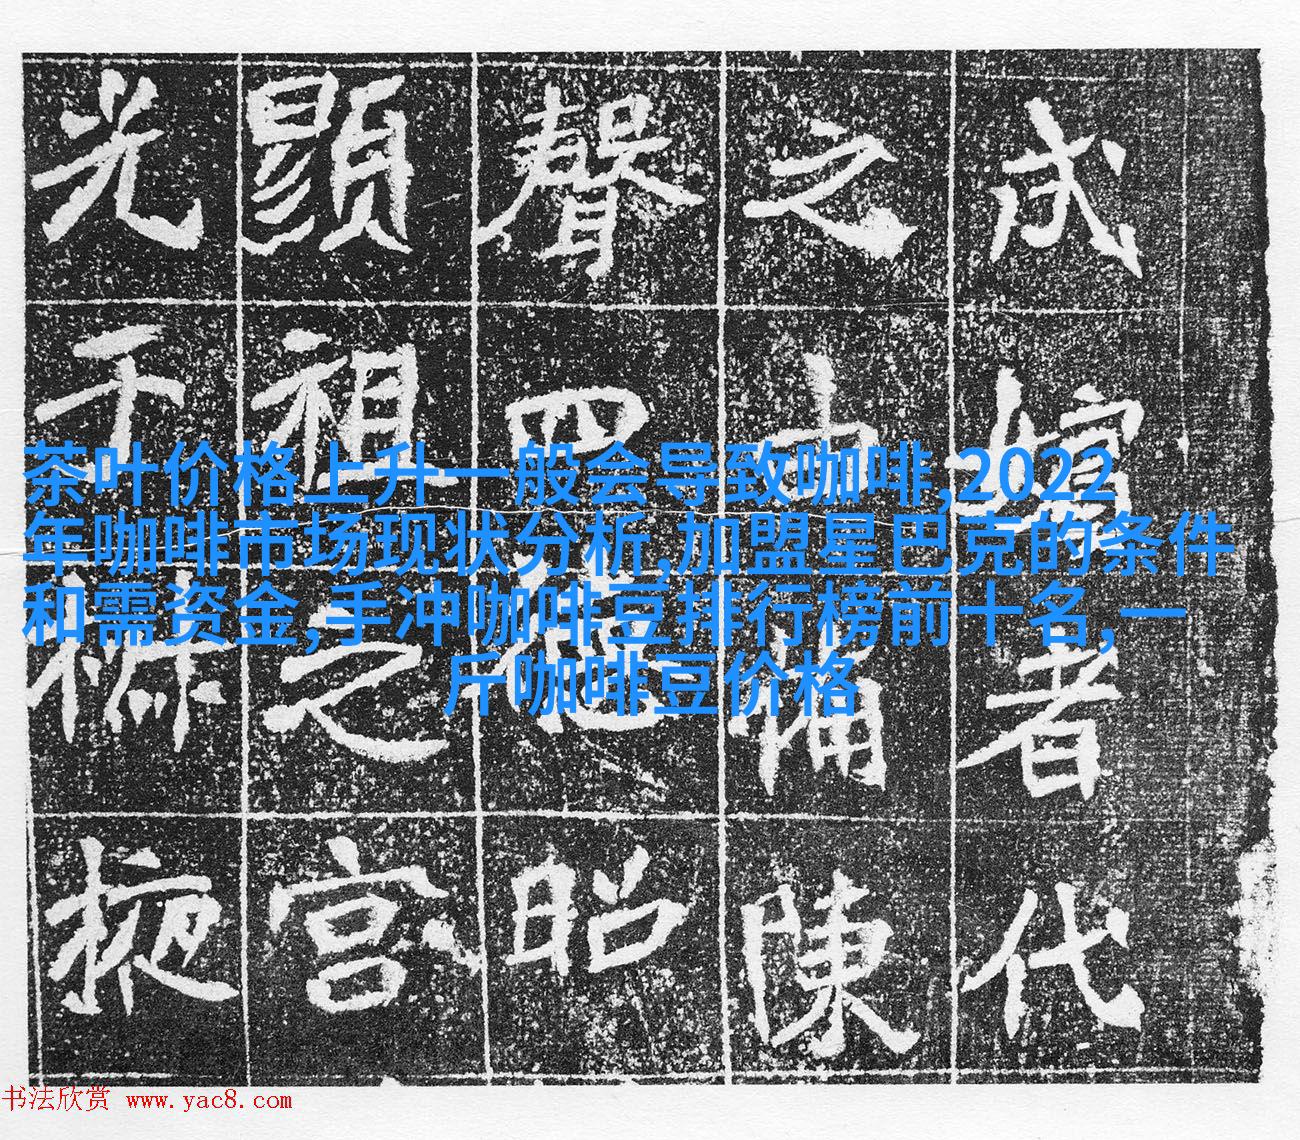 成嬪者代
之備陳
聲四昭
顯祖之宮
光于掖
茶叶价格上升一般会导致咖啡,2022
年咖啡市场现状分析,加盟星巴克的条件
和需资金,手冲咖啡豆排行榜前十名,一
斤咖啡豆价格
书法欣赏 www.yac8.com